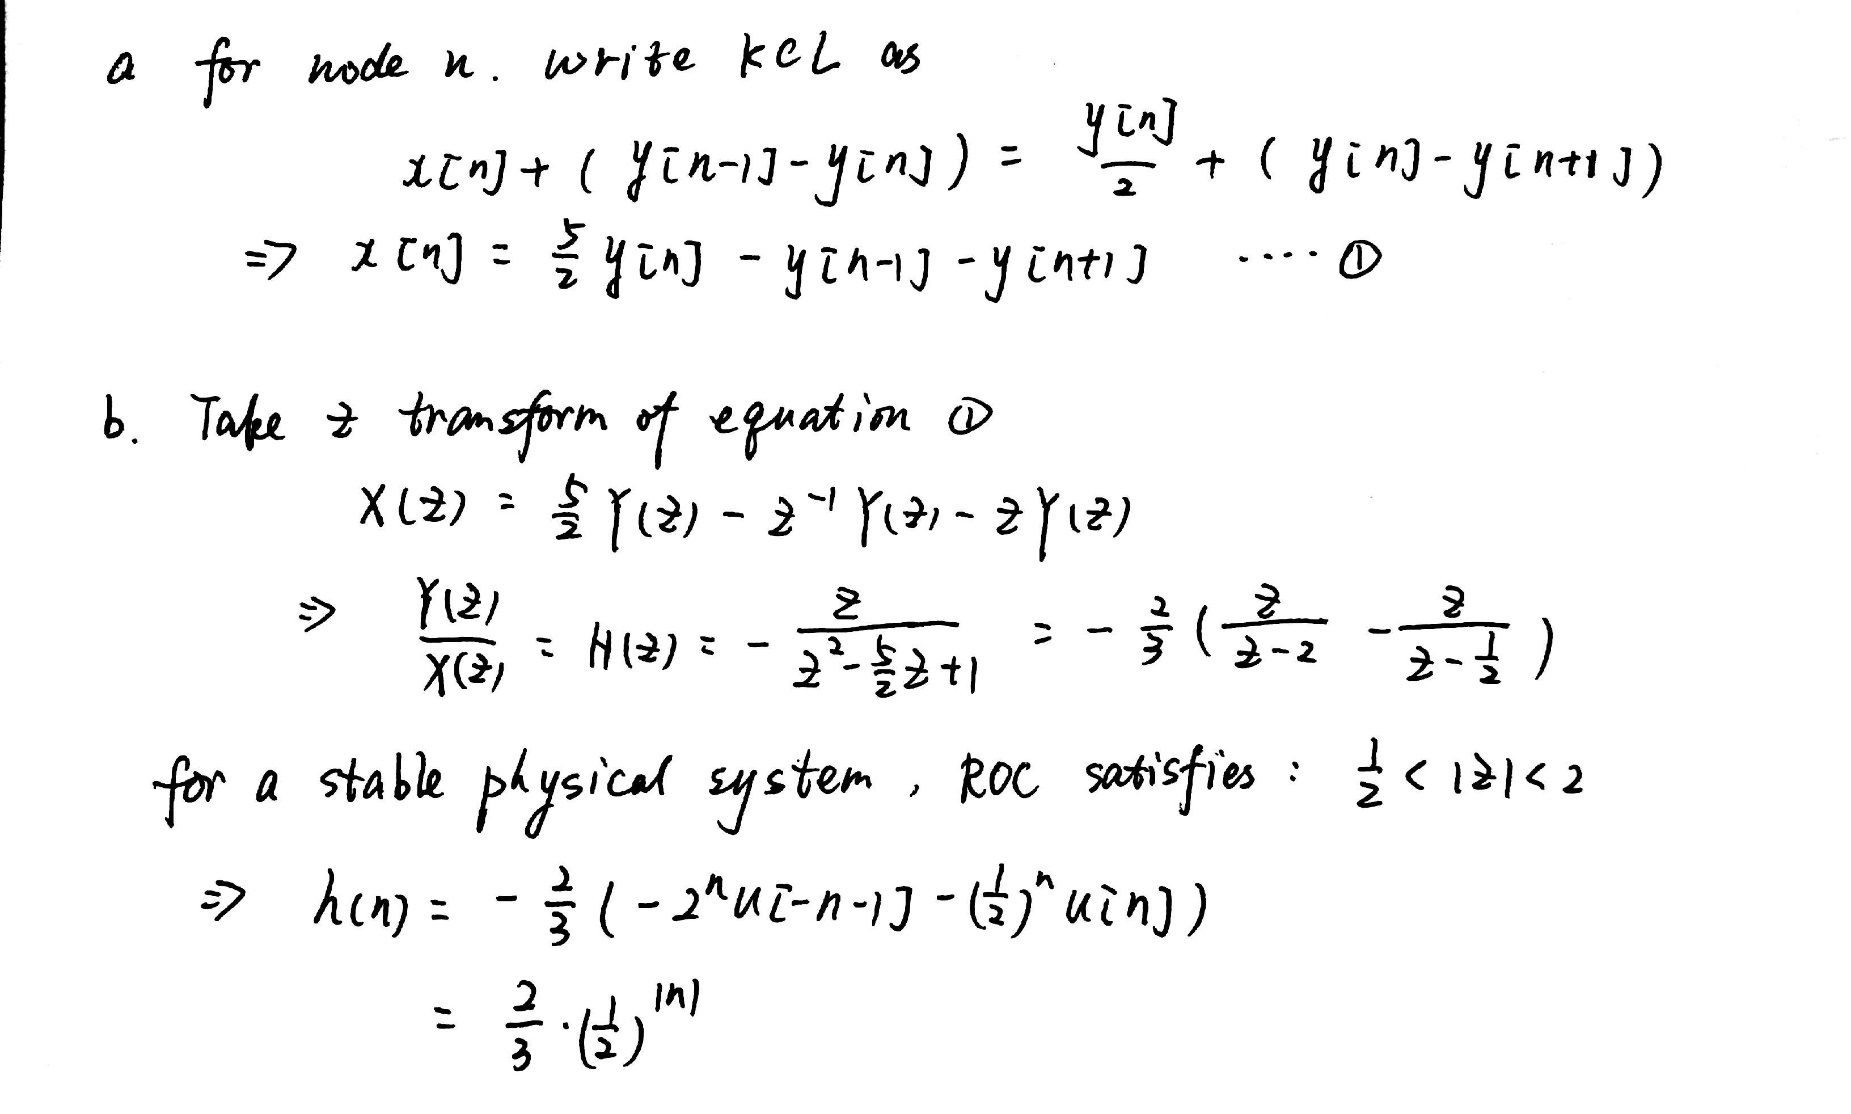 a for node n. write KCL as
x[n] + (y[n-1] - y[n]) = y[n]/2 + (y[n] - y[n+1])
=> x[n] = 5/2 y[n] - y[n-1] - y[n+1] ····①
b. Take z transform of equation ①
X(z) = 5/2 Y(z) - z⁻¹ Y(z) - z Y(z)
=> Y(z)/X(z) = H(z) = - z/(z² - 5/2 z + 1) = - 2/3 ( z/(z-2) - z/(z - 1/2) )
for a stable physical system, ROC satisfies: 1/2 < |z| < 2
=> h[n] = - 2/3 ( - 2ⁿ u[-n-1] - (1/2)ⁿ u[n] )
= 2/3 · (1/2)^|n|